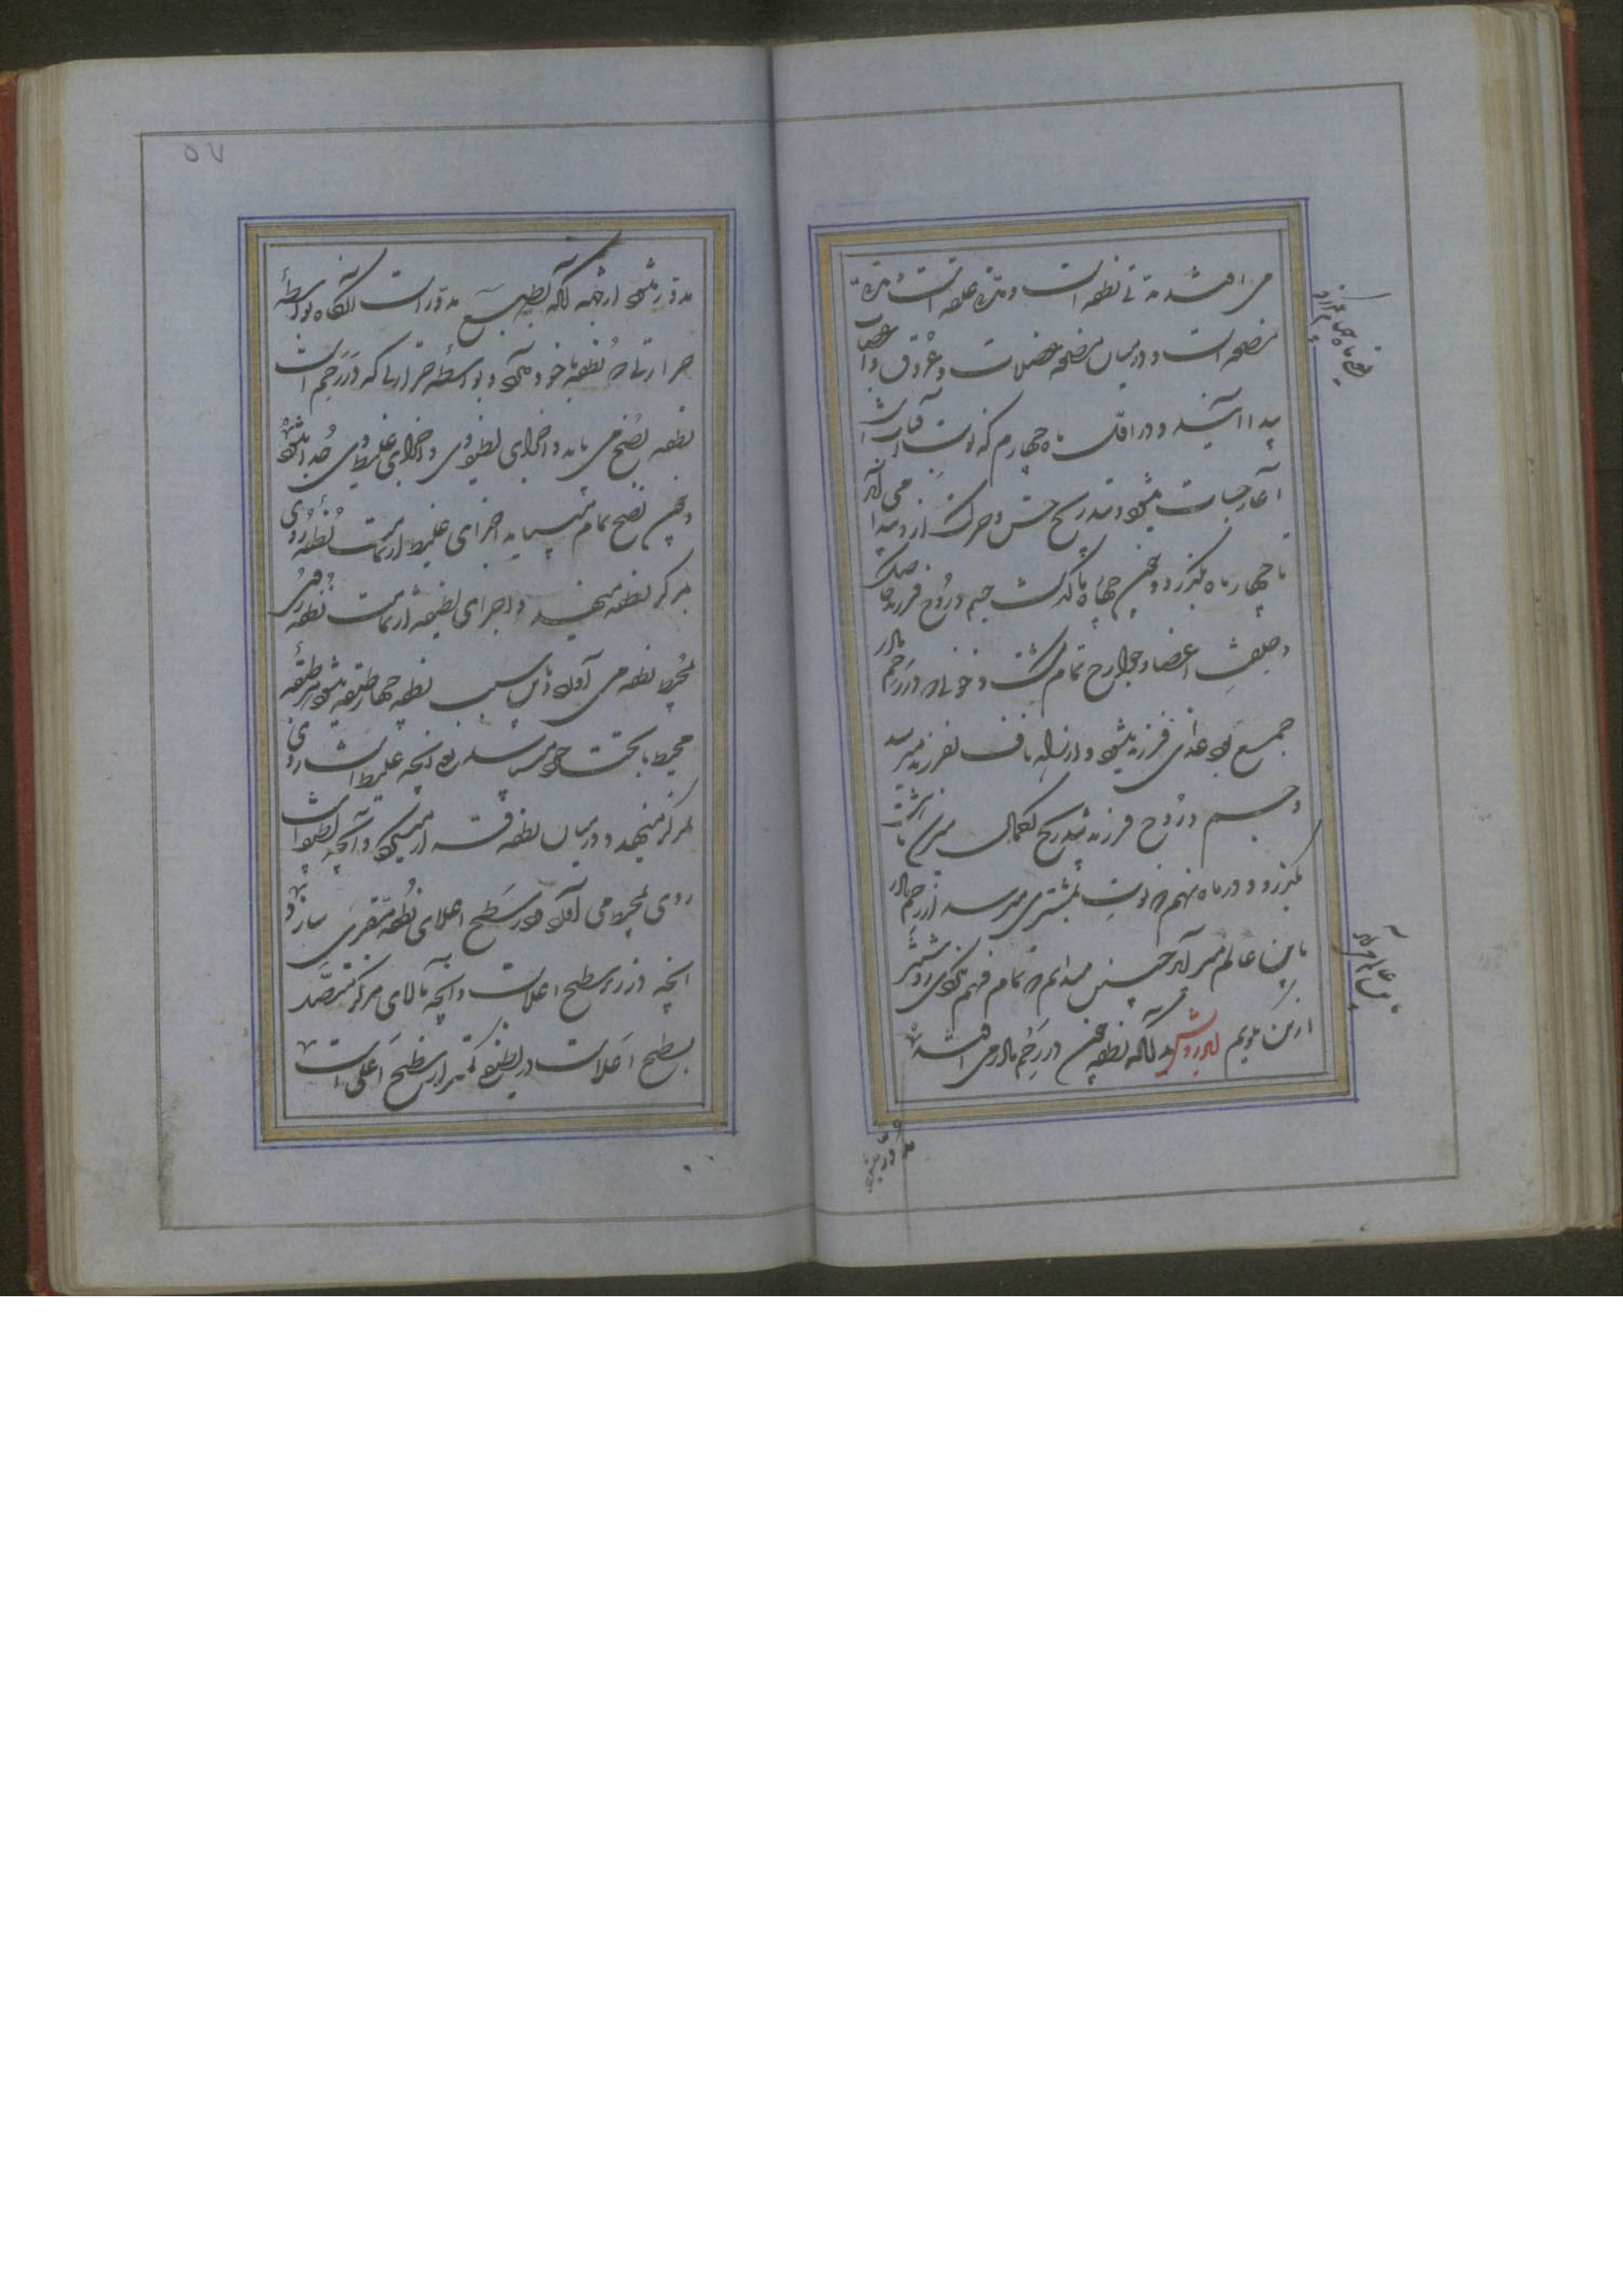 می افتد مدتی نطفه است و مدتی علقه است و مدتی
مضغه است و در میان مضغه عضلات و عروق و اعصاب
پیدا آیند و در اول ماه چهارم که نوبت آفتاب است
آغاز حیات میشود و بتدریج حس و حرکت ارادی پیدا می آید
تا چهار ماه بگذرد و چون چهار ماه گذشت جسم و روح فرزند حاصل
و خلقت اعضا و جوارح تمام گشت و خونی که در رحم مادر
جمع بود غذای فرزند میشود و از راه ناف بفرزند میرسد
و جسم و روح فرزند بتدریج بکمال میرسد تا هشت ماه
بگذرد و در ماه نهم که نوبت بمشتری میرسد از رحم مادر
باین عالم می آید چنین میدانم که تمام فهم نکردی روشن تر
ازین بگویم ای درویش بدانکه نطفه چون در رحم مادر می افتد
مدور میشود
۵۷
مدور میشود از جهت آنکه آب بطبع مدور است آنگاه بواسطه
حرارتی که نطفه با خود دارد و بواسطه حرارتی که در رحم است
نطفه نضج می یابد و اجزای لطیف وی و اجزای غلیظ وی جدا میشود
و چون نضج تمام مییابد اجزای غلیظ از تمامت نطفه روی
بمرکز نطفه مینهد و اجزای لطیفه از تمامت نطفه روی
بمحیط نطفه می آورد و باین سبب نطفه چهار طبقه میشود هر طبقه
محیط ما تحت خود یعنی آنچه غلیظ است روی
بمرکز مینهد و در میان نطفه قرار میگیرد و آنچه لطیف است
روی بمحیط می آورد و در سطح اعلای نطفه مقر می سازد و
آنچه در زیر سطح اعلاست و آنچه بالای مرکز متصل
بسطح اعلاست در لطیفی کمتر از سطح اعلی است